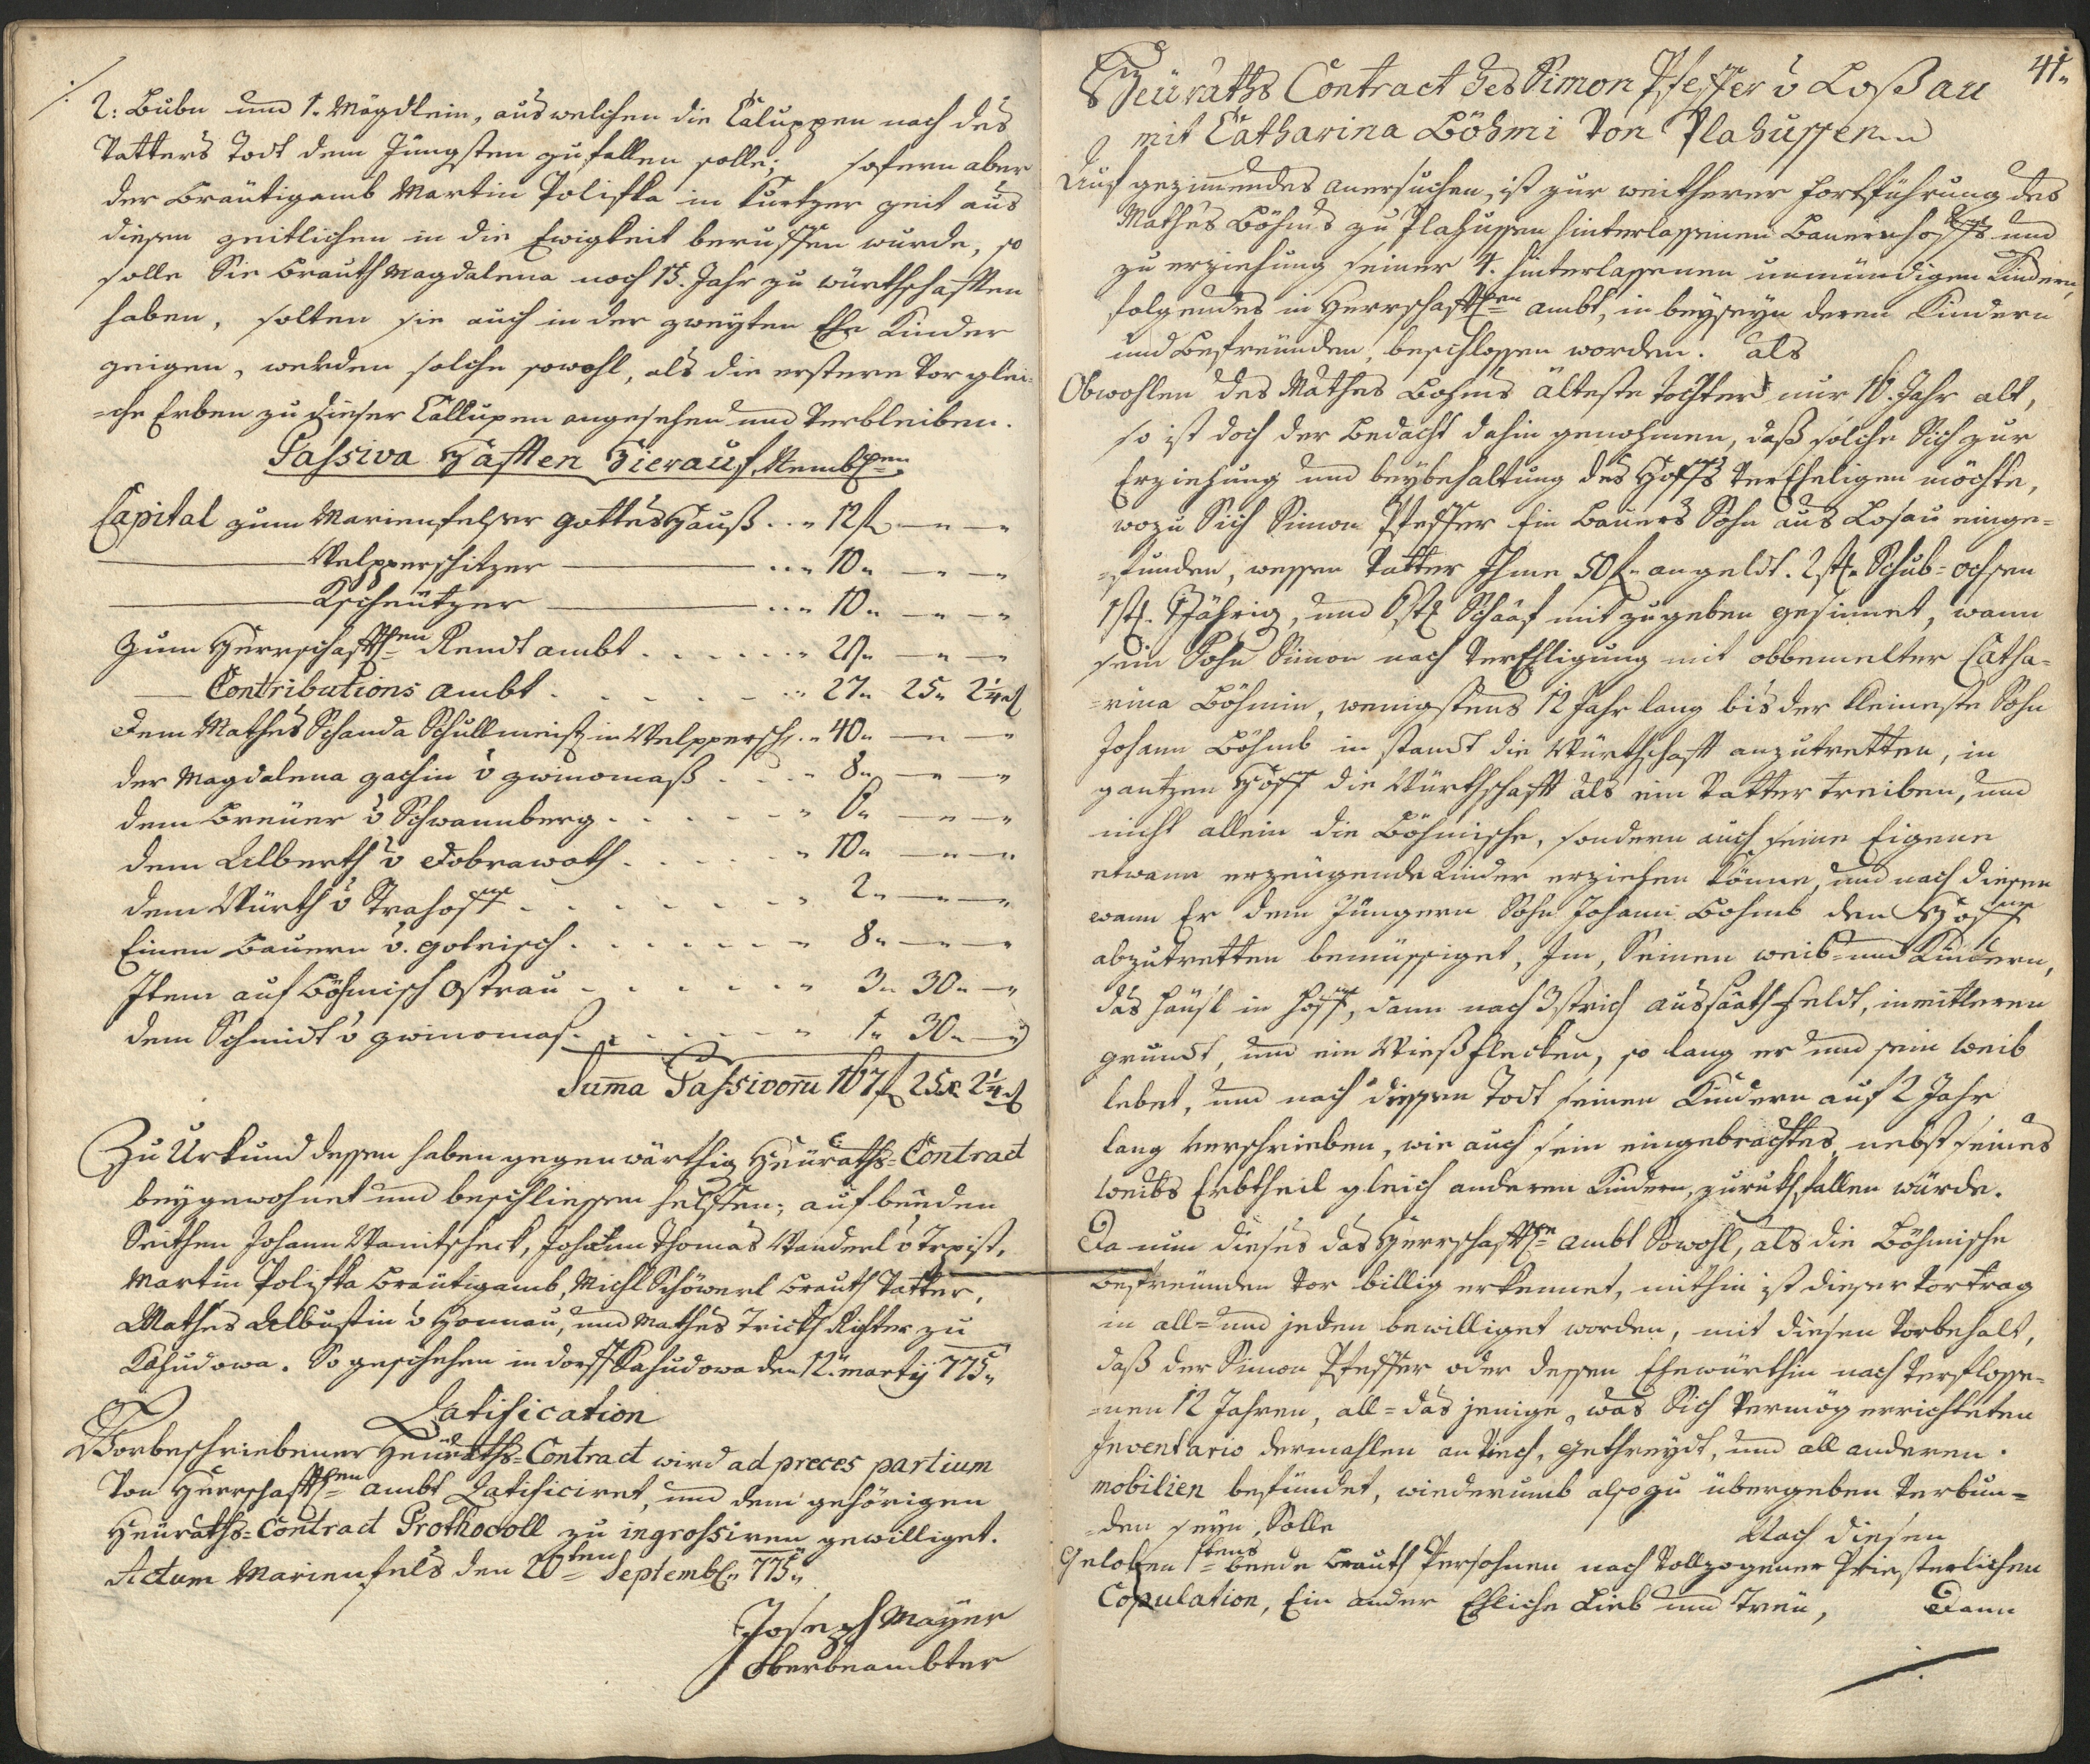 2: Bubn und 1. Mägdlein, aus welchen die Caluppen nach des
Vatters Todt dem Jüngsten zufallen solle; sofern aber
der Bräutigamb Martin Polifka in kurtzer zeit aus
diesen zeitlichen in die Ewigkeit beruffen wurde, so
solle Sie Brauth Magdalena noch 15. Jahr zu würthschafften
haben, solten sie auch in der zweyten Ehe Kinder
zeigen, werden solche sowohl, als die erstere vor glei-
-che Erben zu dieser Callupen angesehen und verbleiben.
Passiva Hafften Hierauf, Nembl:en
Capital zum Marienfelser gottes Hauß . . " 12 f — " — "
Welpperschitzer . . . " 10 " — " — "
Kscheützer . . . " 10 " — " — "
Zum Herrschafftl:en Rendt ambt . . . . . . " 29 " — " — "
— Contributions ambt . . . . . . " 27 " 25 " 2¼ d
Dem Mathes Schanda Schullmeist: in Welppersch: . " 40 " — " — "
der Magdalena zachin v zwinomaß . . . . " 8 " — " — "
dem Breüer v Schwannberg . . . . . . " 6 " — " — "
dem Alberth v Dobrawoth . . . . . . " 10 " — " — "
dem Würth v Trahoff . . . . . . . " 2 " — " — "
Einen Bauern v. goleisch . . . . . . " 8 " — " — "
Item auf Böhmisch Ostrau . . . . . . " 3 " 30 " — "
dem Schmidt v zwinomaß . . . . . . " 1 " 30 " — "
Suma Passivoru 167 f 25 x 2¼ d
Zu Urkund dessen haben gegenwärthig Heüraths-Contract
beygewohnet und beschliessen helffen; auf beeden
Seithen Johann Wanitscheck, Johann Thomas Wanderl v Trpist,
Martin Polifka Bräutigamb, Michl Schöwerl Brauth Vatter,
Mathes Albustin v Honnau, und Mathes Trickh Richter zu
Kahudowa. So geschehen in dorff Kahudowa den 12. marty 775 "
Ratification
Vorbeschriebener Heüraths-Contract wird ad preces partium
Von Herrschafftl:en ambt Ratificiret, und dem gehörigen
Heüraths-Contract Prothocoll zu ingrossiren gewilliget.
Actum Marienfels den 20ten Septembl: 775 "
Joseph Mayer
Oberbeambter
41 "
Heüraths Contract des Simon Pfeffer v Loßau
mit Catharina Böhmi Von Plahussen
Auf geziemendes anersuchen, ist zur weitherer fortführung des
Mathes Böhms zu Plahussen hinterlassenen Bauernhoffs und
zu erziehung seiner 4. hinterlassenen unmündigen Kindern,
folgendes in Herrschafftl:en ambt, in beyseyn deren Kindern
und Befreünden, beschlossen worden. Als
Obwohlen des Mathes Bohms älteste tochter nur 16. Jahr alt,
so ist doch der Bedacht dahin genohmen, daß solche Sich zur
Erziehung und beybehaltung des Hoffs verEheligen möchte,
wozu Sich Simon Pfeffer Ein Bauers Sohn aus Losau einge-
-funden, wessen Vatter Ihme 50 f. angeldt. 2 st: Schub-ochsen
1 st: 1 Jährig, und 6 st: Schaaf mitzugeben gesinnet, wann
sein Sohn Simon nach verEhligung mit obbemelter Catha-
-rina Böhmin, wenigstens 12 Jahr lang bis der kleineste Sohn
Johann Böhmb in standt die Würthschafft anzutretten, in
gantzen Hoff die Würthschafft als ein Vatter treiben, und
nicht allein die Böhmische, sondern auch seine Eigene
etwann erzeügende Kinder erziehen könne, und nach diesen
wann Er dem Jüngern Sohn Johann Bohmb den Hoff
abzutretten bemüssiget, Im, Seinen weib- und Kindern,
das Häusl in Hoff, dann nach 3 strich aussaath feldt, in mitleren
grundt, und ein Wießflecken, so lang er und sein weib
lebet, und nach diessen Todt seinen Kindern auf 2 Jahr
lang verschrieben, wie auch sein eingebrachtes nebst seines
weibs Erbtheil gleich anderen Kindern, zuruckfallen würde.
Da nun dieses das Herrschafftl:e ambt Sowohl, als die Böhmische
Befreünden vor billig erkennet, mithin ist dieser Vortrag
in all- und jeden bewilliget worden, mit diesen Vorbehalt,
daß der Simon Pfeffer oder dessen Ehewürthin nach verflosse-
-nen 12 Jahren, all-das jenige, was Sich vermög errichteten
Inventario dermahlen an Viech, gethreydt, und all anderen
mobilien befündet, wiederumb also zu übergeben verbun-
-den seyn Solle Nach diesen
Geloben 1stens beede Brauth Persohnen nach Vollzogener Priesterlichen
Copulation, Ein ander Ehliche Lieb und Treü, Dann